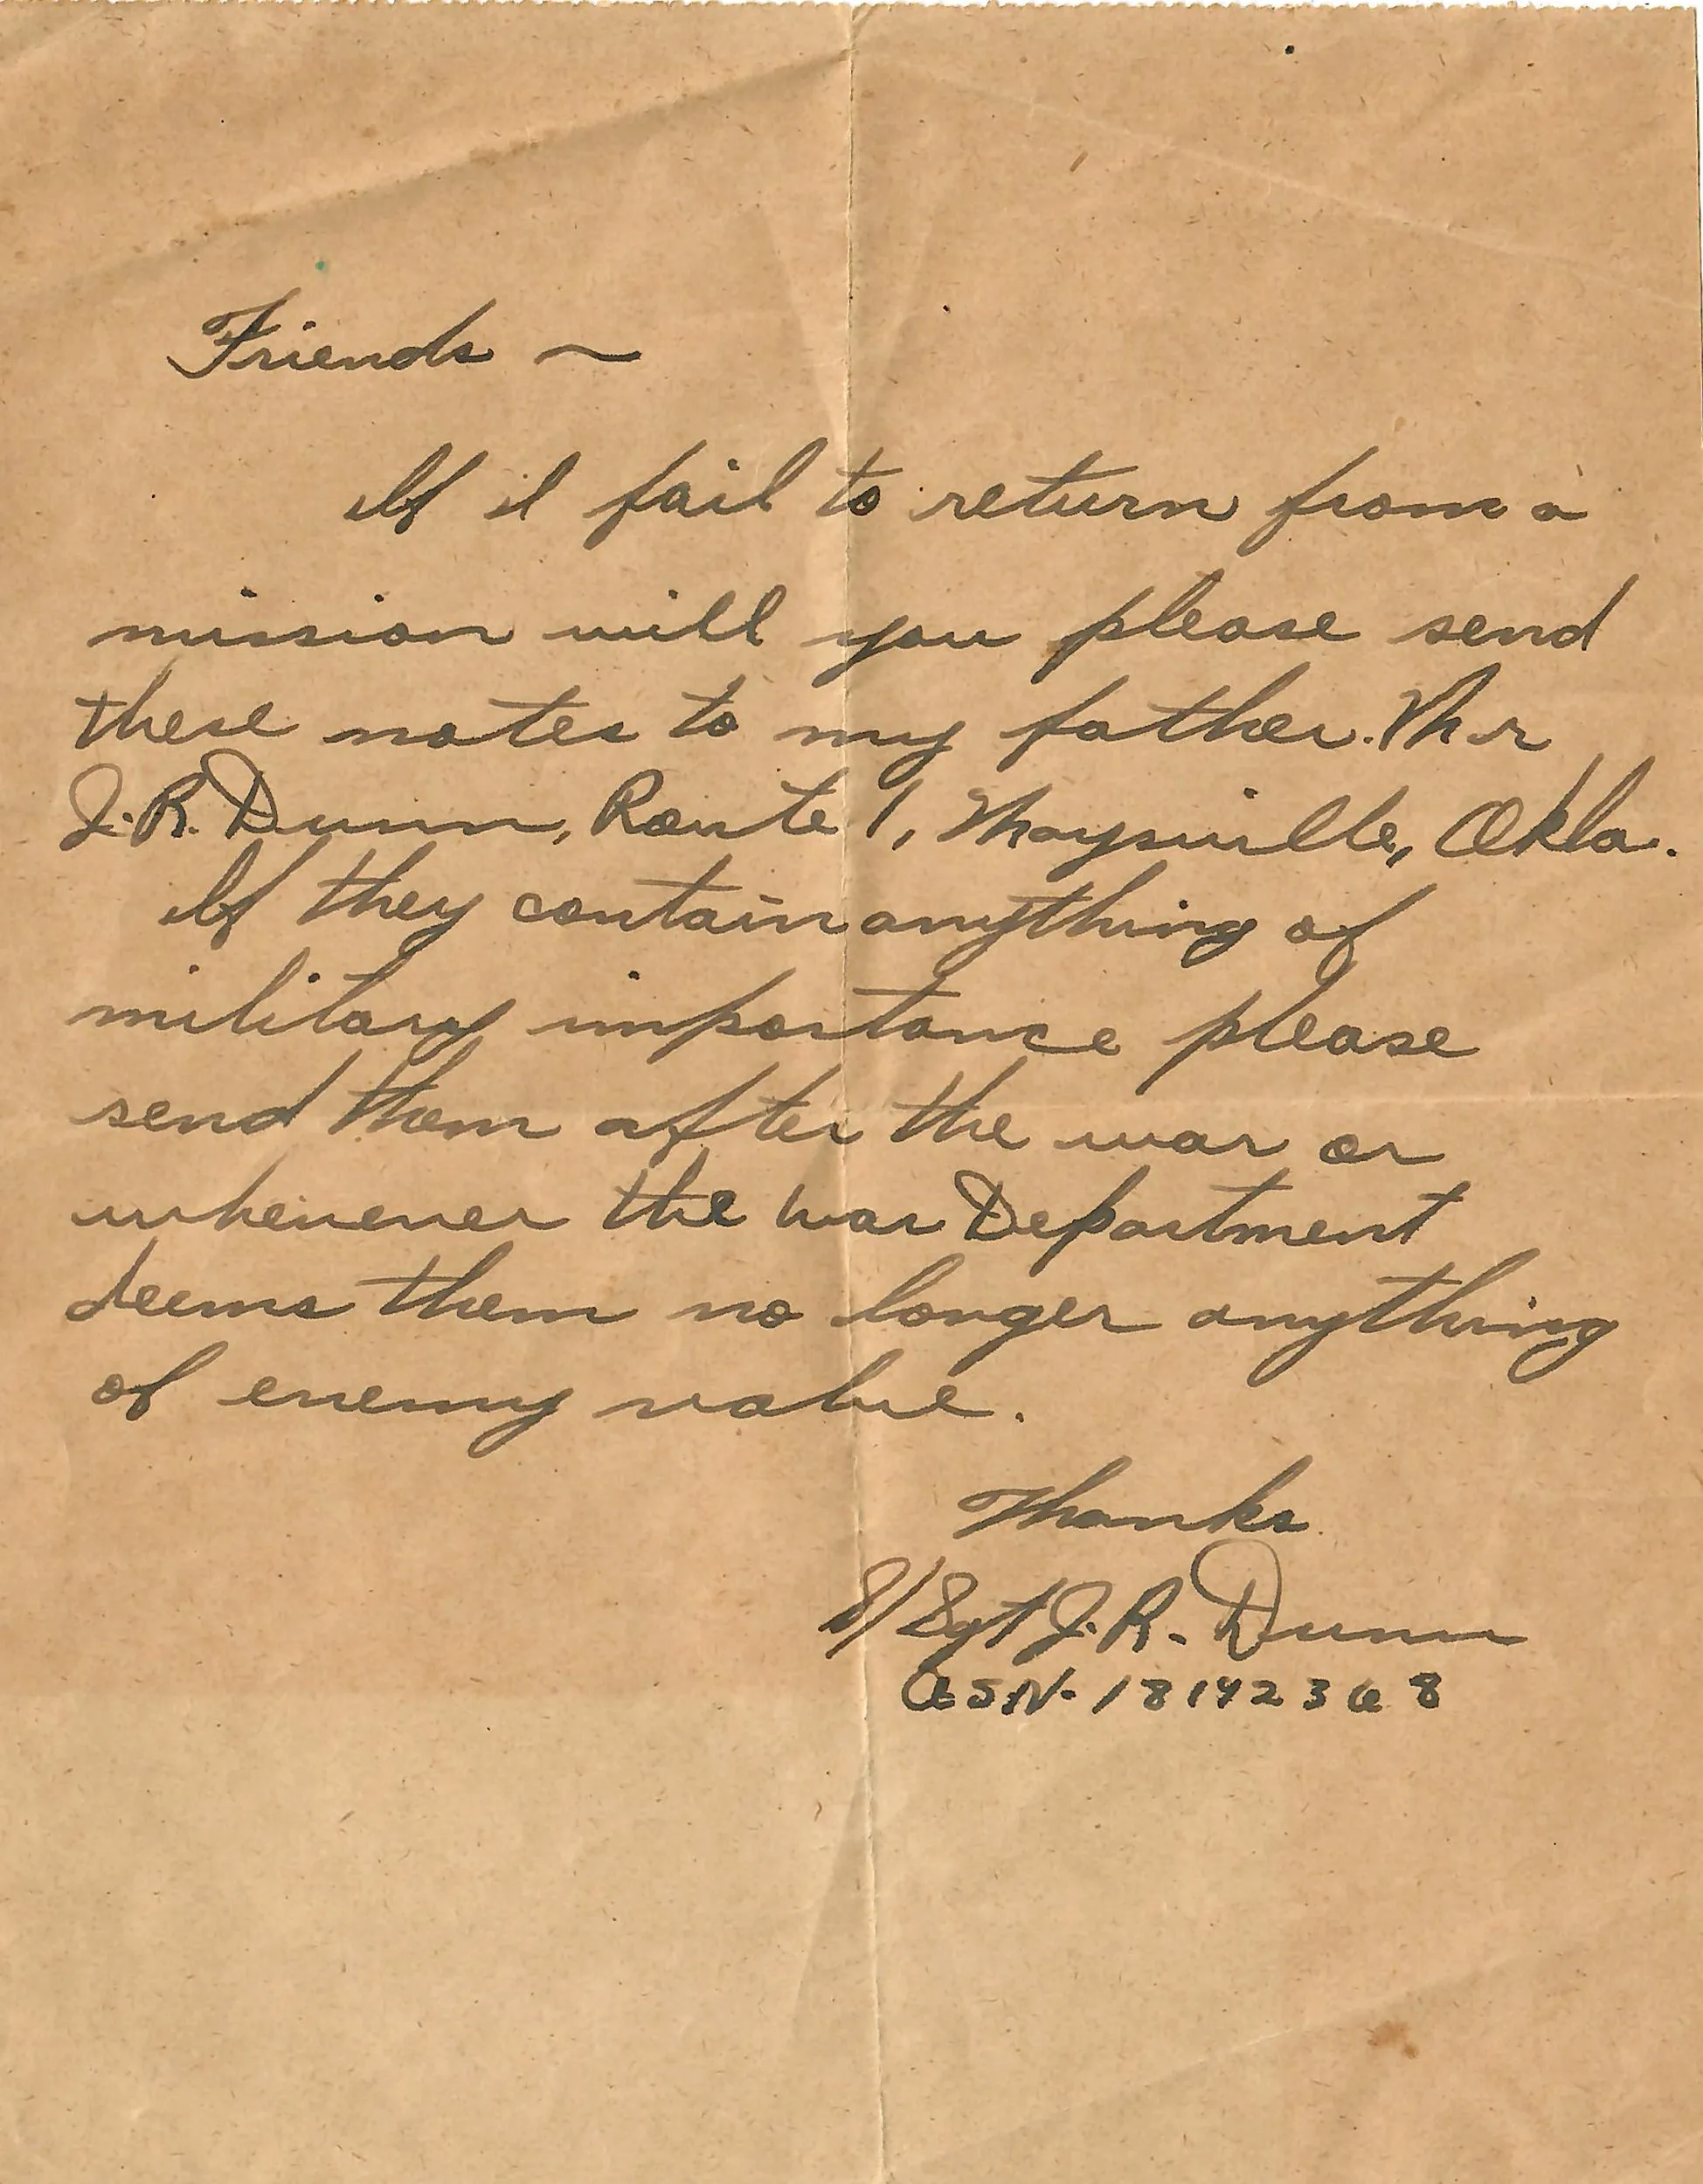 Friends ~
If I fail to return from a
mission will you please send
these notes to my father. Mr
J. R. Dunn, Route 1, Maysville, Okla.
If they contain anything of
military importance please
send them after the war or
whenever the War Department
deems them no longer anything
of enemy value.
Thanks
S/Sgt J. R. Dunn
ASN. 18142368